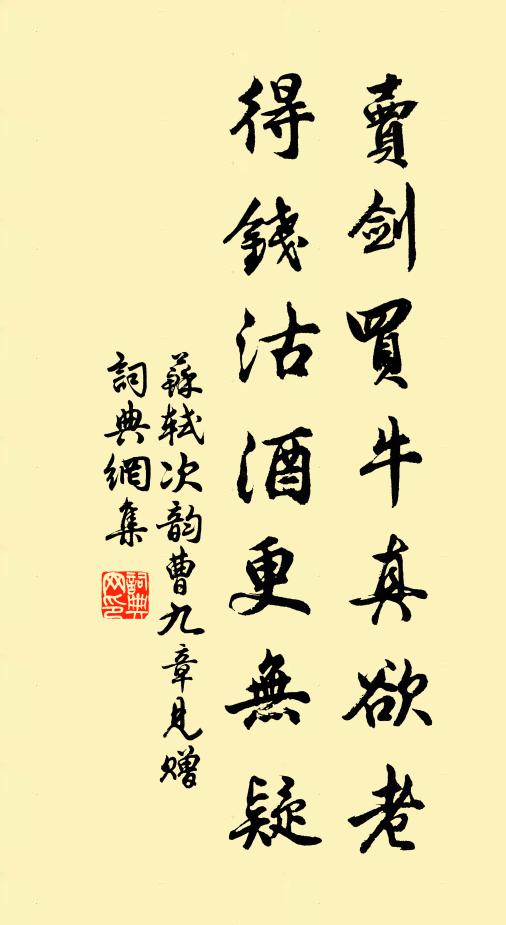 賣劍買牛真欲老
得錢沽酒更無疑
蘇軾次韵曹九章見贈
詞典網集
詞典
网印